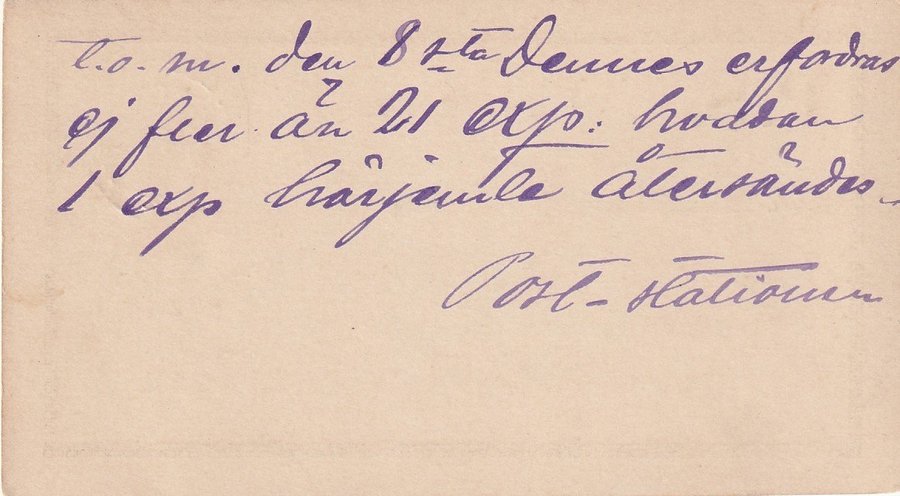 t.o.m. den 8sta Dennes erfordras
ej fler än 21 exp: hvadan
1 exp härjemte återsändes
Post-stationen